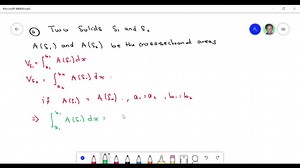 Ⓐ Two Solids S₁ and S₂
A(S₁) and A(S₂) be the cross-sectional areas
V_S₁ = ∫_{a₁}^{b₁} A(S₁) dx
V_S₂ = ∫_{a₂}^{b₂} A(S₂) dx.
if A(S₁) = A(S₂)., a₁ = a₂, b₁ = b₂
⇒ ∫_{a₁}^{b₁} A(S₁) dx =